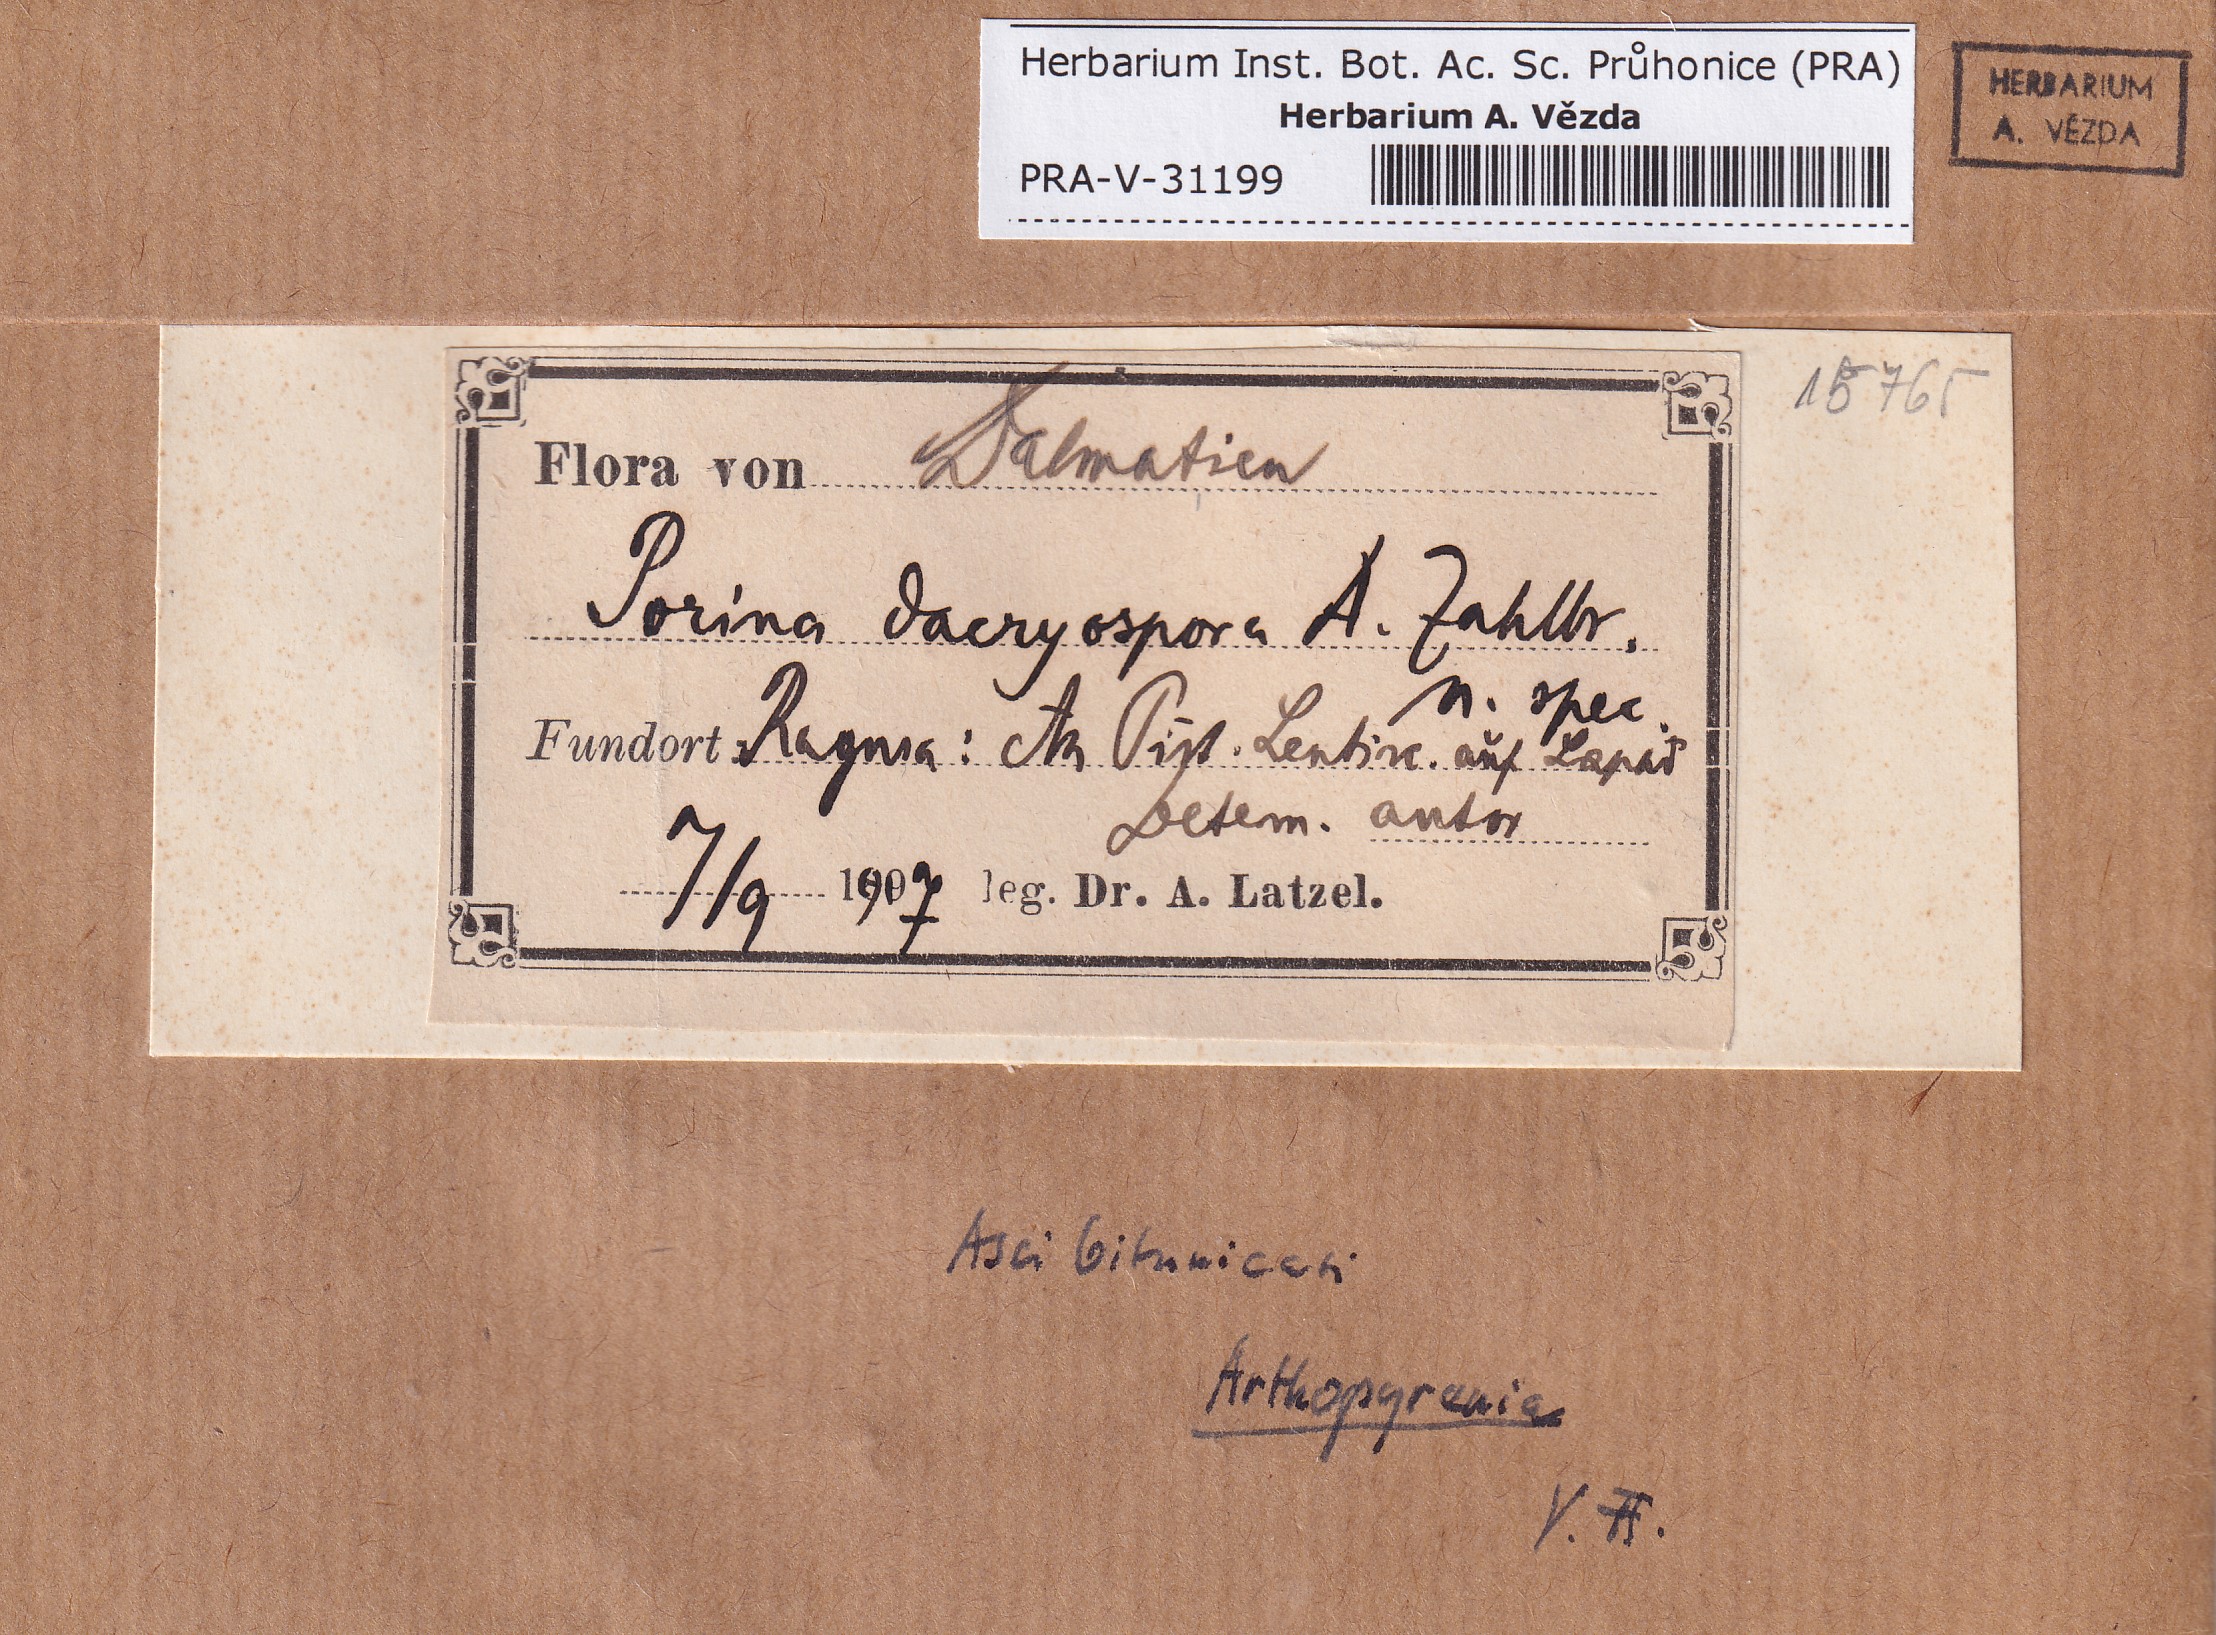 Herbarium Inst. Bot. Ac. Sc. Průhonice (PRA)
Herbarium A. Vězda
PRA-V-31199
HERBARIUM
A. VĚZDA
15765
Flora von Dalmatien
Porina dacryospora A. Zahlbr.
n. spec.
Fundort: Ragusa: An Pist. Lentisc. auf Lapad
Determ. autor
7/9 1907 leg. Dr. A. Latzel.
Asci bitunicati
Arthopyrenia